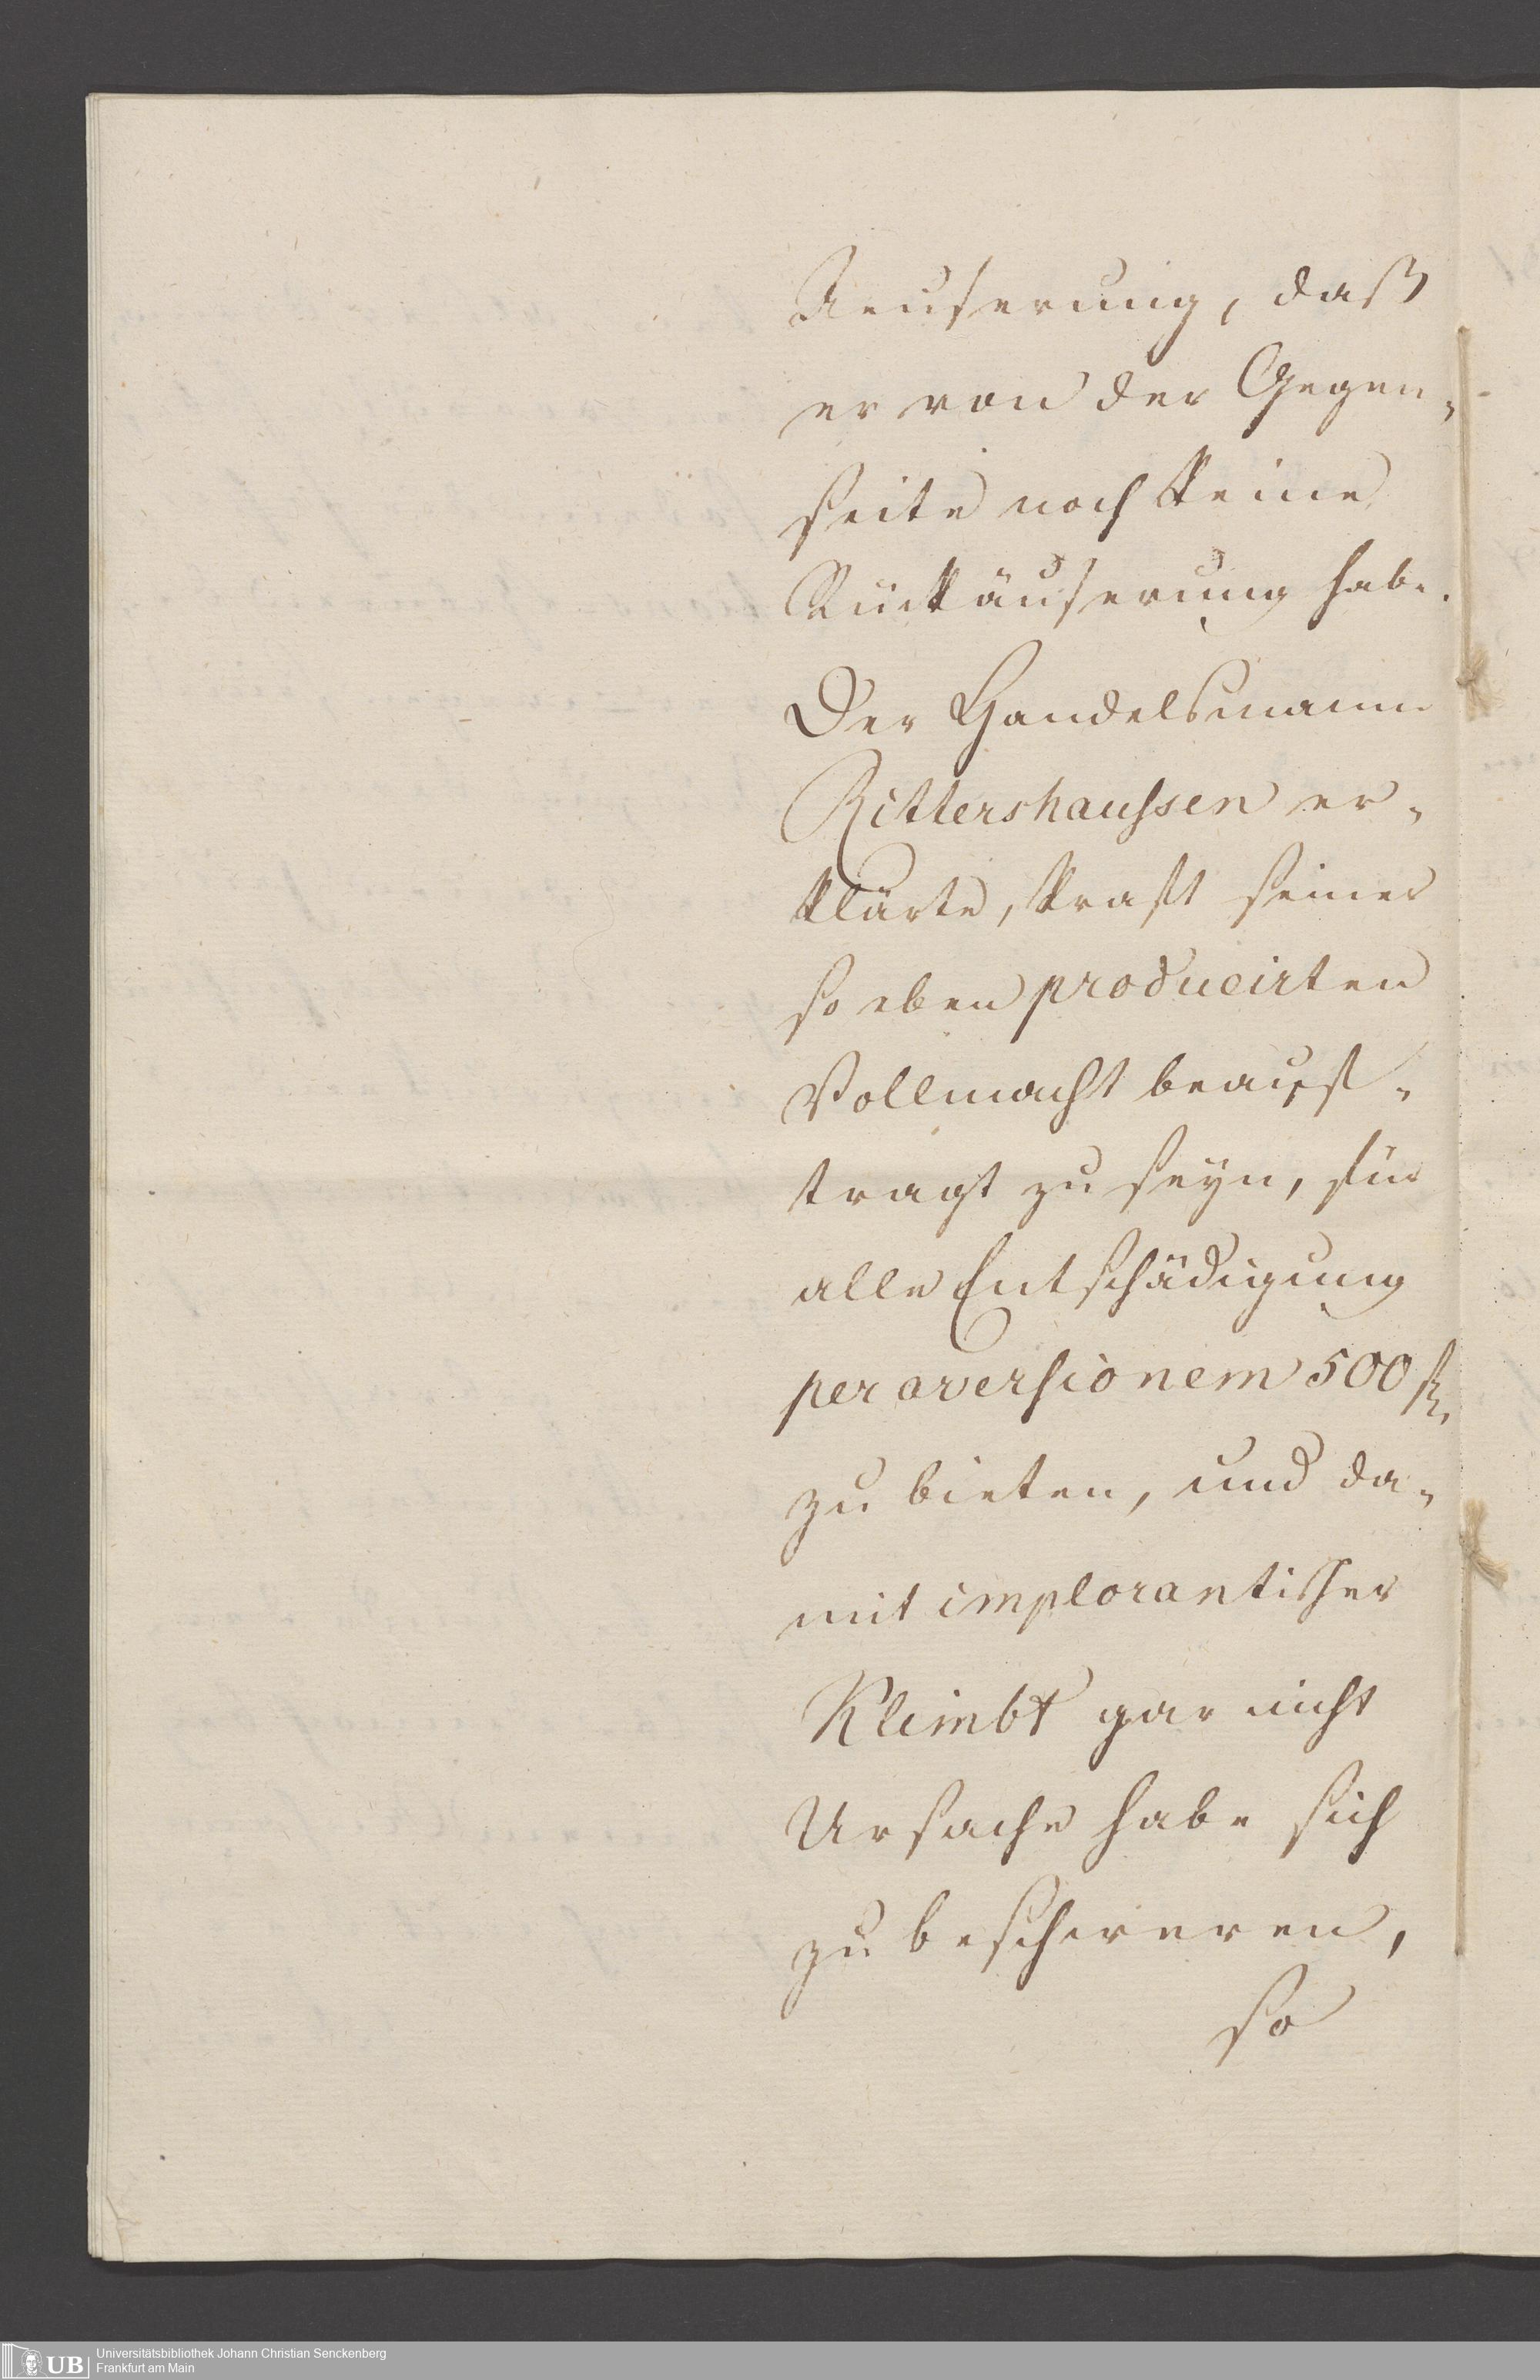 Aeuserung, daß
er von der Gegen-
seite noch keine
Rückäuserung habe.
Der Handelsmann
Rittershaussen er-
klärte, kraft seiner
so eben producirten
Vollmacht beauf-
tragt zu seyn, für
alle Entschädigung
per aversionem 500 fl.
zu bieten, und da-
mit implorantischer
Klimbt gar nicht
Ursache habe sich
zu beschweren,
so
UB
Universitätsbibliothek Johann Christian Senckenberg
Frankfurt am Main